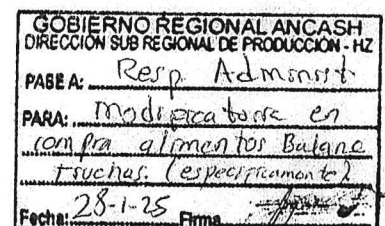 GOBIERNO REGIONAL ANCASH
DIRECCIÓN SUB REGIONAL DE PRODUCCIÓN - HZ
PASE A: Resp. Administ
PARA: modificatoria en
compra alimentos Balanc
truchas. (especificamente)
Fecha: 28-1-25 Firma